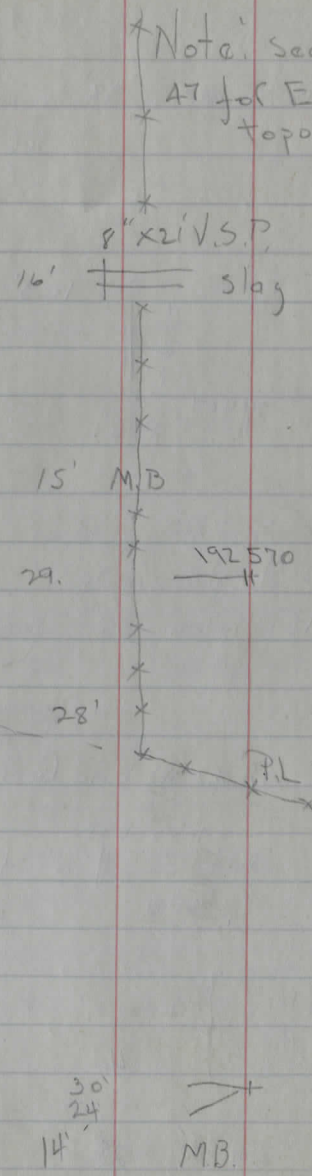 Note: See
47 for E
topo
8" x 21' V.S.P.
16' slag
15' M.B
192 570
29.
28'
P.L
30'
24'
14' M.B.